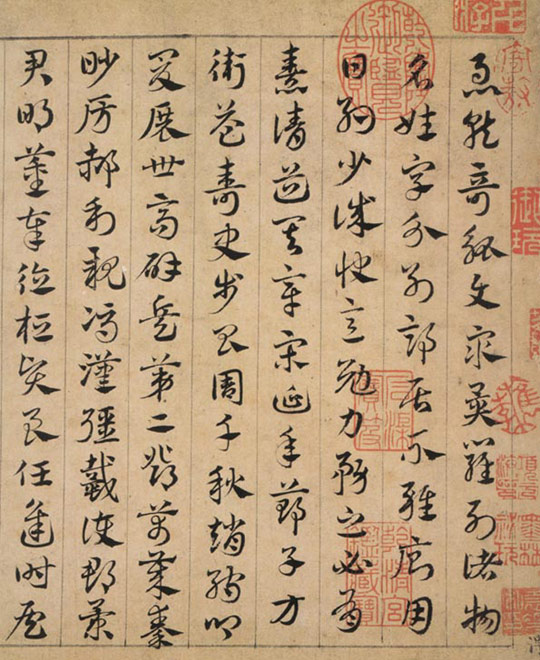 急就奇觚與衆異羅列諸物
名姓字分別部居不雜廁用
日約少誠快意勉力務之必有
憙請道其章宋延年鄭子方
衛益壽史步昌周千秋趙孺卿
爰展世高辟兵第二鄧萬歲秦
眇房郝利親馮漢彊戴護郡景
君明董奉德桓賢良任逢時侯